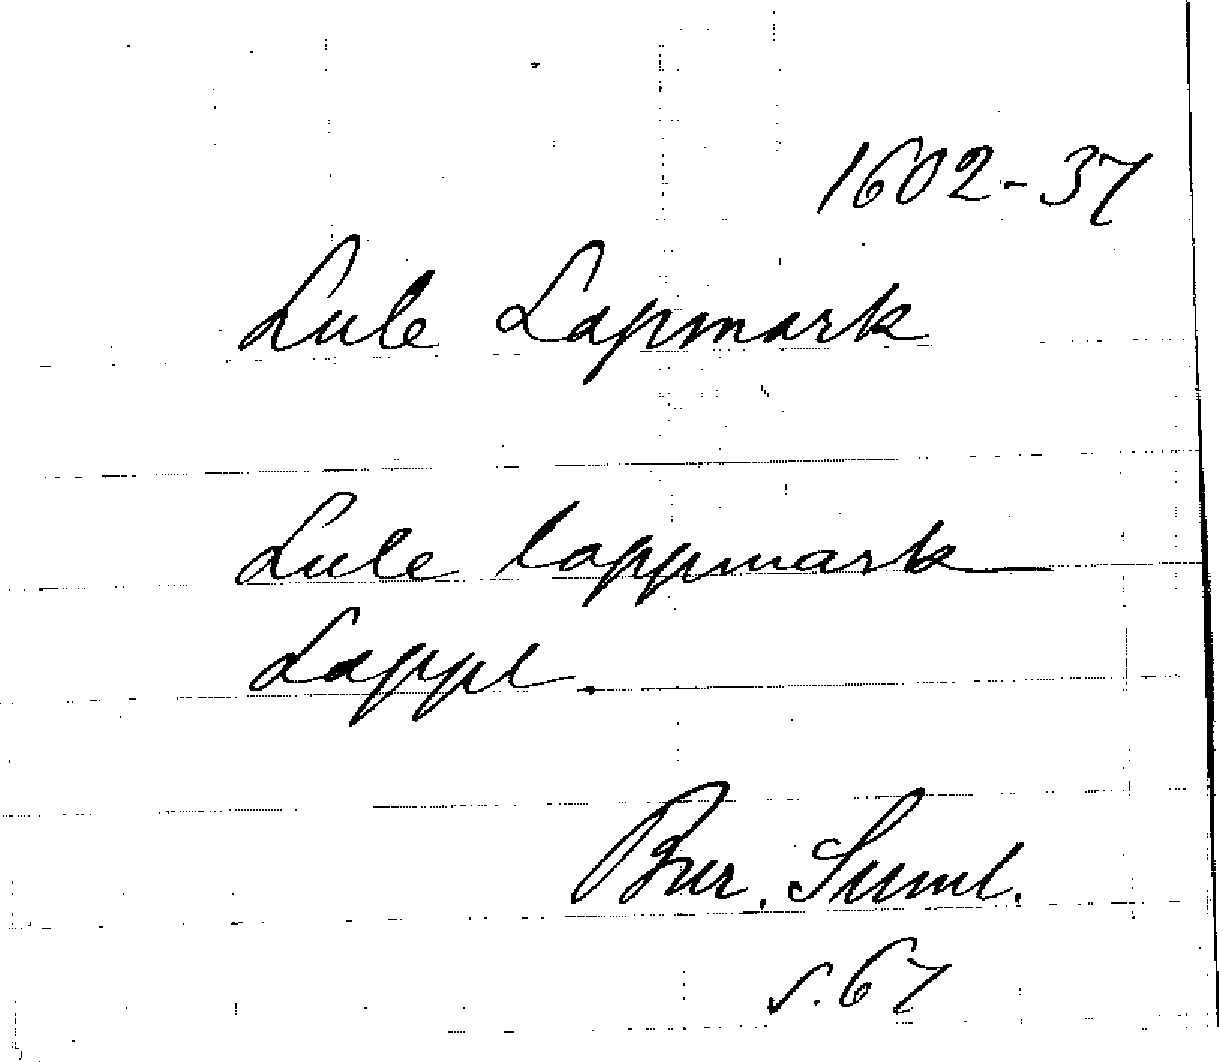 1602-37
Lule Lapmark
Lule lappmark
Lappl.
Bur. Suml.
s. 67